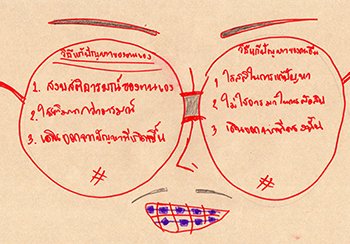 วิธีแก้ปัญหาของตนเอง
1. สงบสติอารมณ์ของตนเอง
2. ใช้เหตุผลกว่าอารมณ์
3. เดินออกจากปัญหาที่เกิดขึ้น
#
วิธีแก้ปัญหาของคนอื่น
1 ใช้สติในการแก้ปัญหา
2 ไม่ใช้อารมณ์ในการตัดสิน
3 เดินออกจากที่ตรงนั้น
#